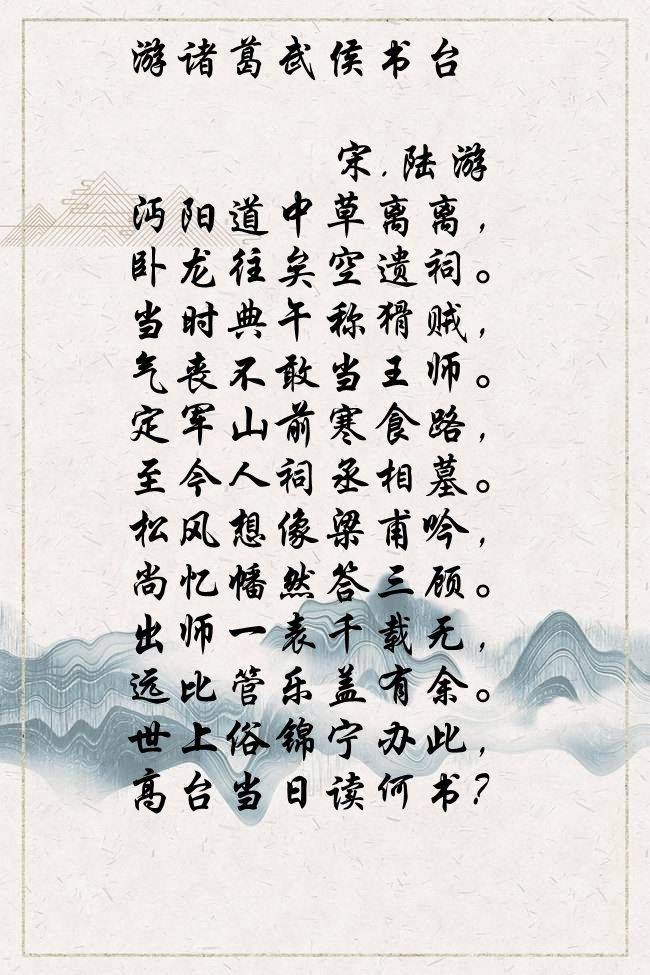 游诸葛武侯书台
宋.陆游
沔阳道中草离离，
卧龙往矣空遗祠。
当时典午称猾贼，
气丧不敢当王师。
定军山前寒食路，
至今人祠丞相墓。
松风想像梁甫吟，
尚忆幡然答三顾。
出师一表千载无，
远比管乐盖有余。
世上俗锦宁办此，
高台当日读何书？